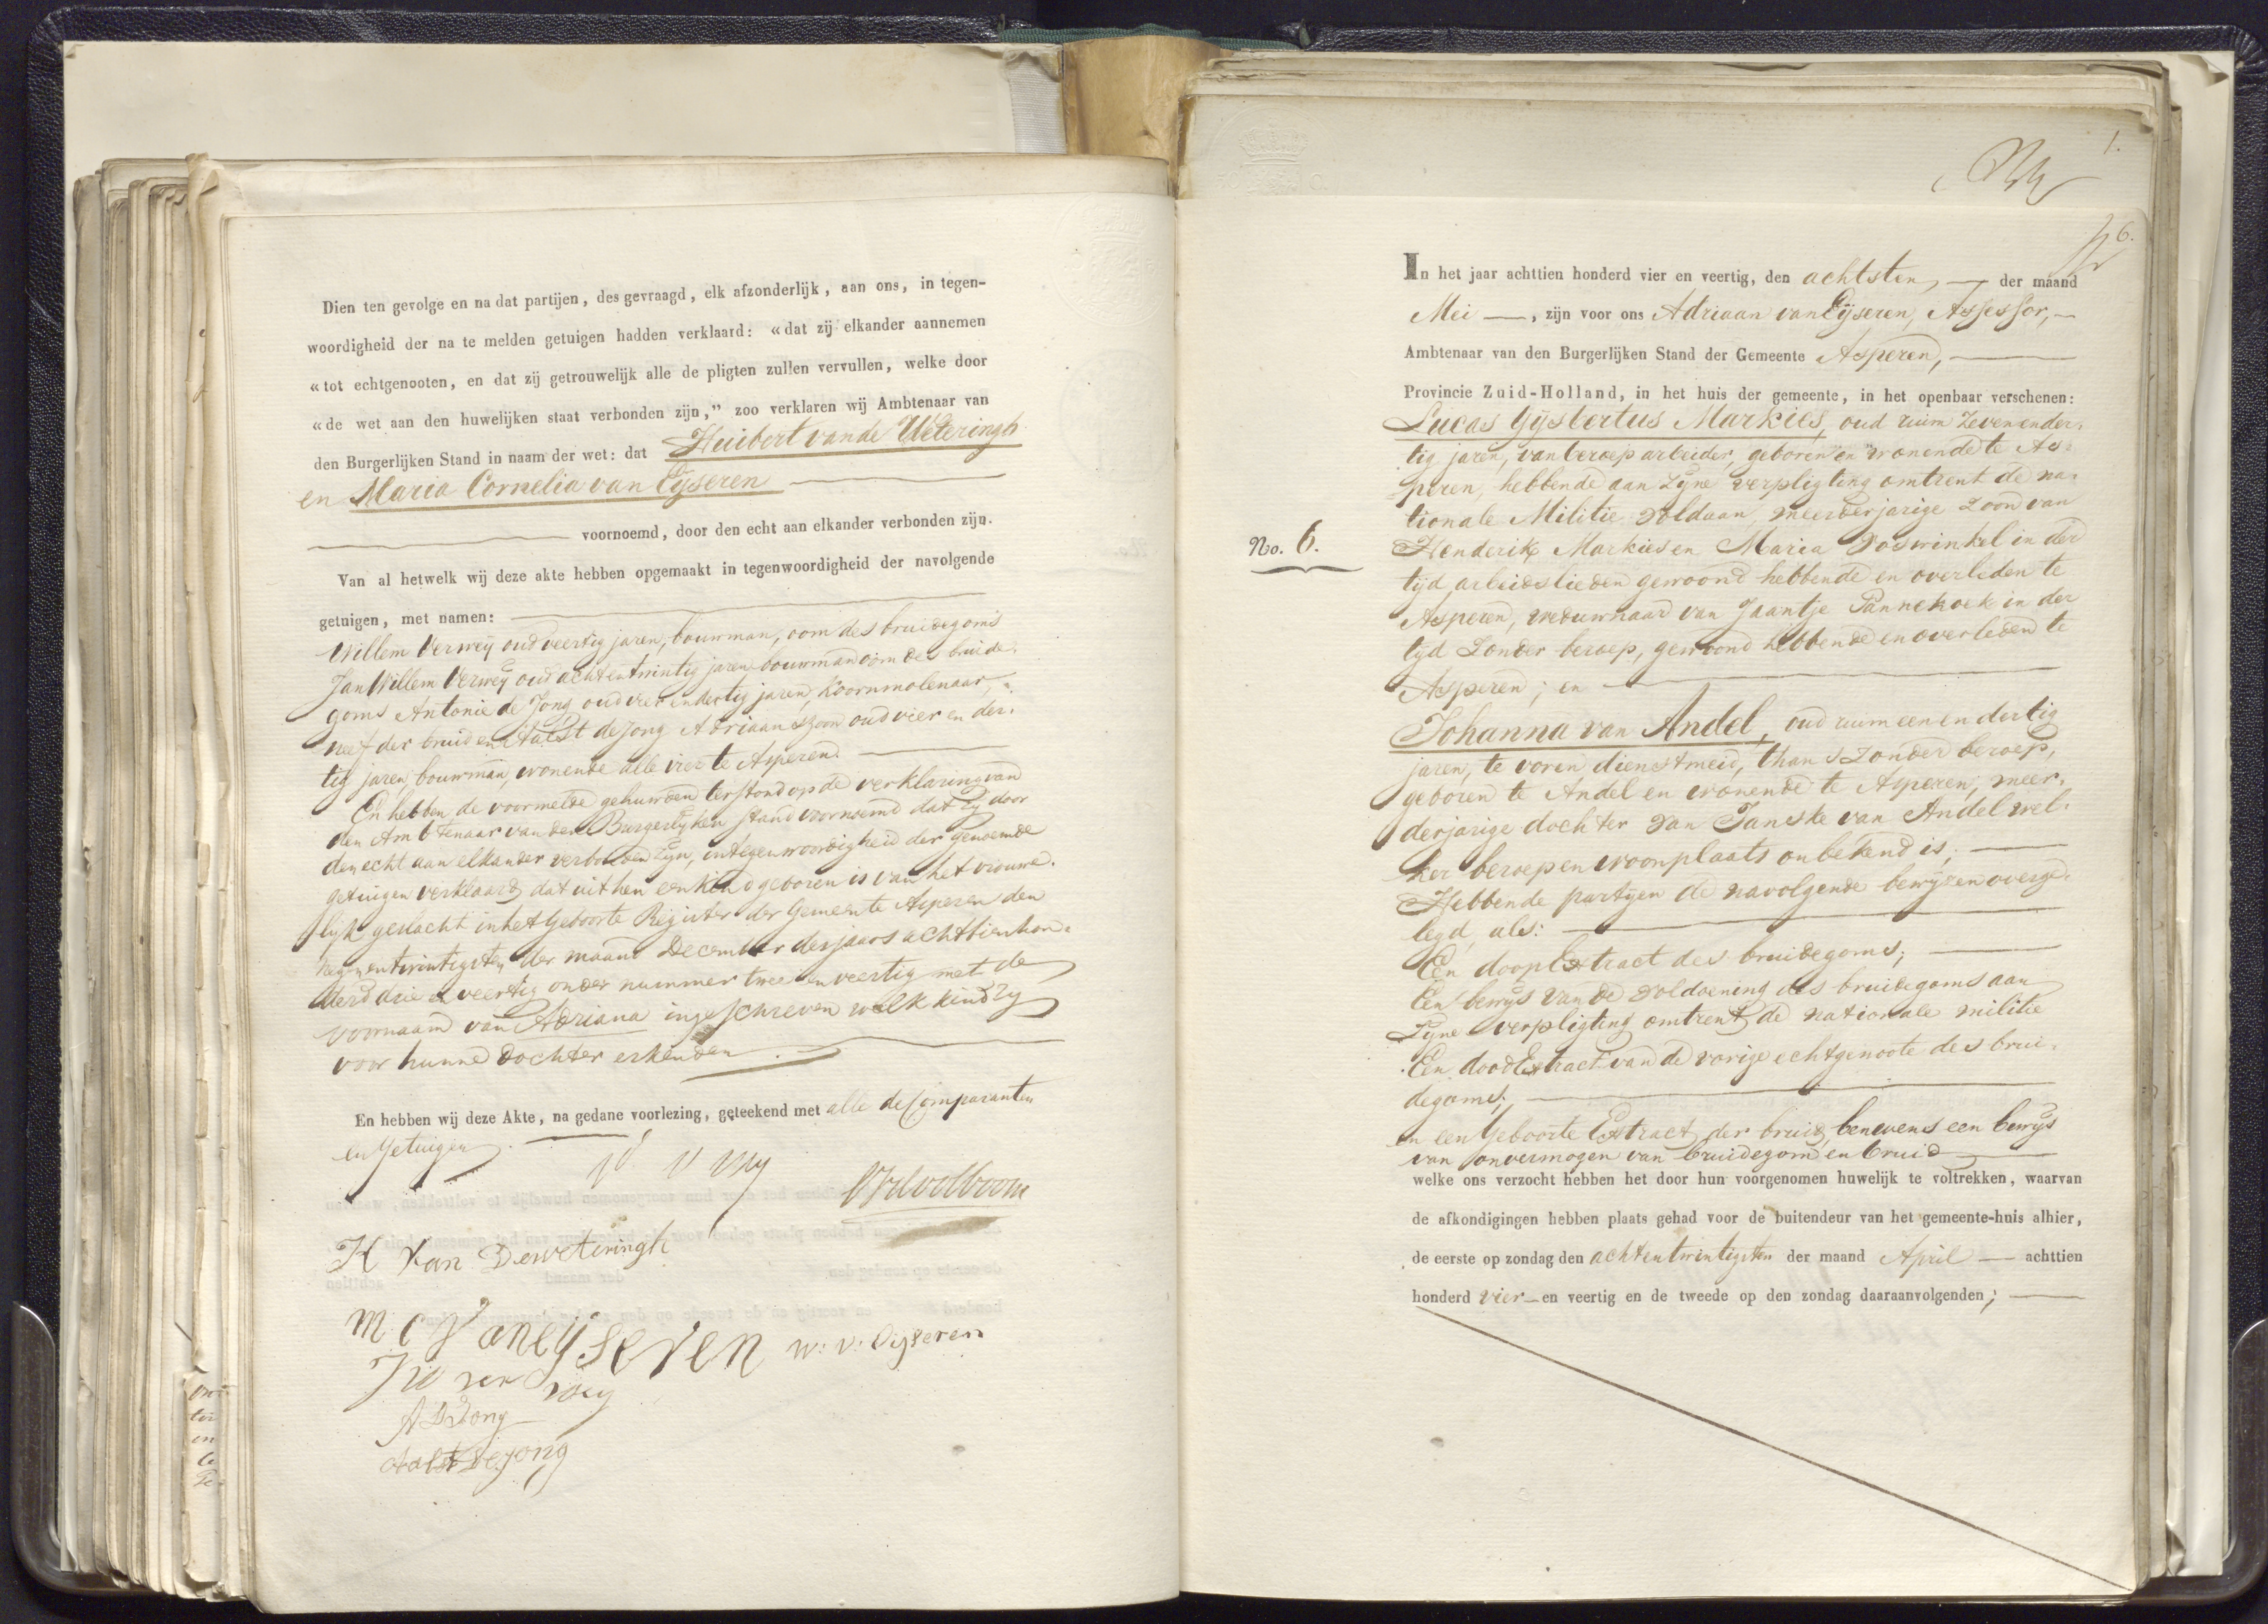 Dien ten gevolge en na dat partijen, des gevraagd, elk afzonderlijk, aan ons, in tegen-
woordigheid der na te melden getuigen hadden verklaard: «dat zij elkander aannemen
«tot echtgenooten, en dat zij getrouwelijk alle de pligten zullen vervullen, welke door
«de wet aan den huwelijken staat verbonden zijn,” zoo verklaren wij Ambtenaar van
den Burgerlijken Stand in naam der wet: dat Huibert van de Weteringh
en Maria Cornelia van Eijseren
voornoemd, door den echt aan elkander verbonden zijn.
Van al hetwelk wij deze akte hebben opgemaakt in tegenwoordigheid der navolgende
getuigen, met namen:
Willem Verweij oud veertig jaren, bouwman, oom des bruidegoms
Jan Willem Verweij oud achtentwintig jaren bouwman oom des bruide-
goms Antonie de Jong oud vier en dertig jaren, koornmolenaar,
neef der bruid en Aalst de Jong Adriaanszoon oud vier en der-
tig jaren, bouwman, wonende alle vier te Asperen.
En hebben de voormelde gehuwden terstond op de verklaring van
den Ambtenaar van den Burgerlijken stand voornoemd dat zij door
den echt aan elkander verbonden zijn, in tegenwoordigheid der genoemde
getuigen verklaard dat uit hen een kind geboren is van het vrouwe-
lijk geslacht in het Geboorte Register der Gemeente Asperen den
negenentwintigsten der maand December des jaars achttienhon-
derd drie en veertig onder nummer twee en veertig met de
voornaam van Adriana ingeschreven welk kind zij
voor hunne dochter erkenden.
En hebben wij deze Akte, na gedane voorlezing, geteekend met alle de Comparanten
en Getuigen.
H Van Deweteringh
M C Vaneijseren
W: V: Eijseren
J W ver weij
A D Jong
Aalst De Jong
1.
6.
In het jaar achttien honderd vier en veertig, den achtsten, der maand
Mei, zijn voor ons Adriaan van Eijseren, Assessor,
Ambtenaar van den Burgerlijken Stand der Gemeente Asperen,
Provincie Zuid-Holland, in het huis der gemeente, in het openbaar verschenen:
Lucas Gijsbertus Markies, oud ruim zevenender-
tig jaren, van beroep arbeider, geboren en wonende te As-
peren, hebbende aan zijne verpligting omtrent de na-
tionale Militie voldaan, meerderjarige zoon van
No. 6.
Henderik Markies en Maria Voswinkel in der
tijd arbeidslieden gewoond hebbende en overleden te
Asperen, weduwnaar van Jaantje Pannekoek in der
tijd zonder beroep, gewoond hebbende en overleden te
Asperen; en
Johanna van Andel, oud ruim een en dertig
jaren, te voren dienstmeid, thans zonder beroep,
geboren te Andel en wonende te Asperen, meer-
derjarige dochter van Janske van Andel wel-
ker beroep en woonplaats onbekend is;
Hebbende partijen de navolgende bewijzen overge-
legd, als:
Een doopExtract des bruidegoms;
Een bewijs van de voldoening des bruidegoms aan
zijne verpligting omtrent de nationale militie
Een doodExtract van de vorige echtgenoote des brui-
degoms;
en een Geboorte Extract der bruid, benevens een bewijs
van onvermogen van bruidegom en bruid
welke ons verzocht hebben het door hun voorgenomen huwelijk te voltrekken, waarvan
de afkondigingen hebben plaats gehad voor de buitendeur van het gemeente-huis alhier,
de eerste op zondag den achtentwintigsten der maand April achttien
honderd vier en veertig en de tweede op den zondag daaraanvolgenden;